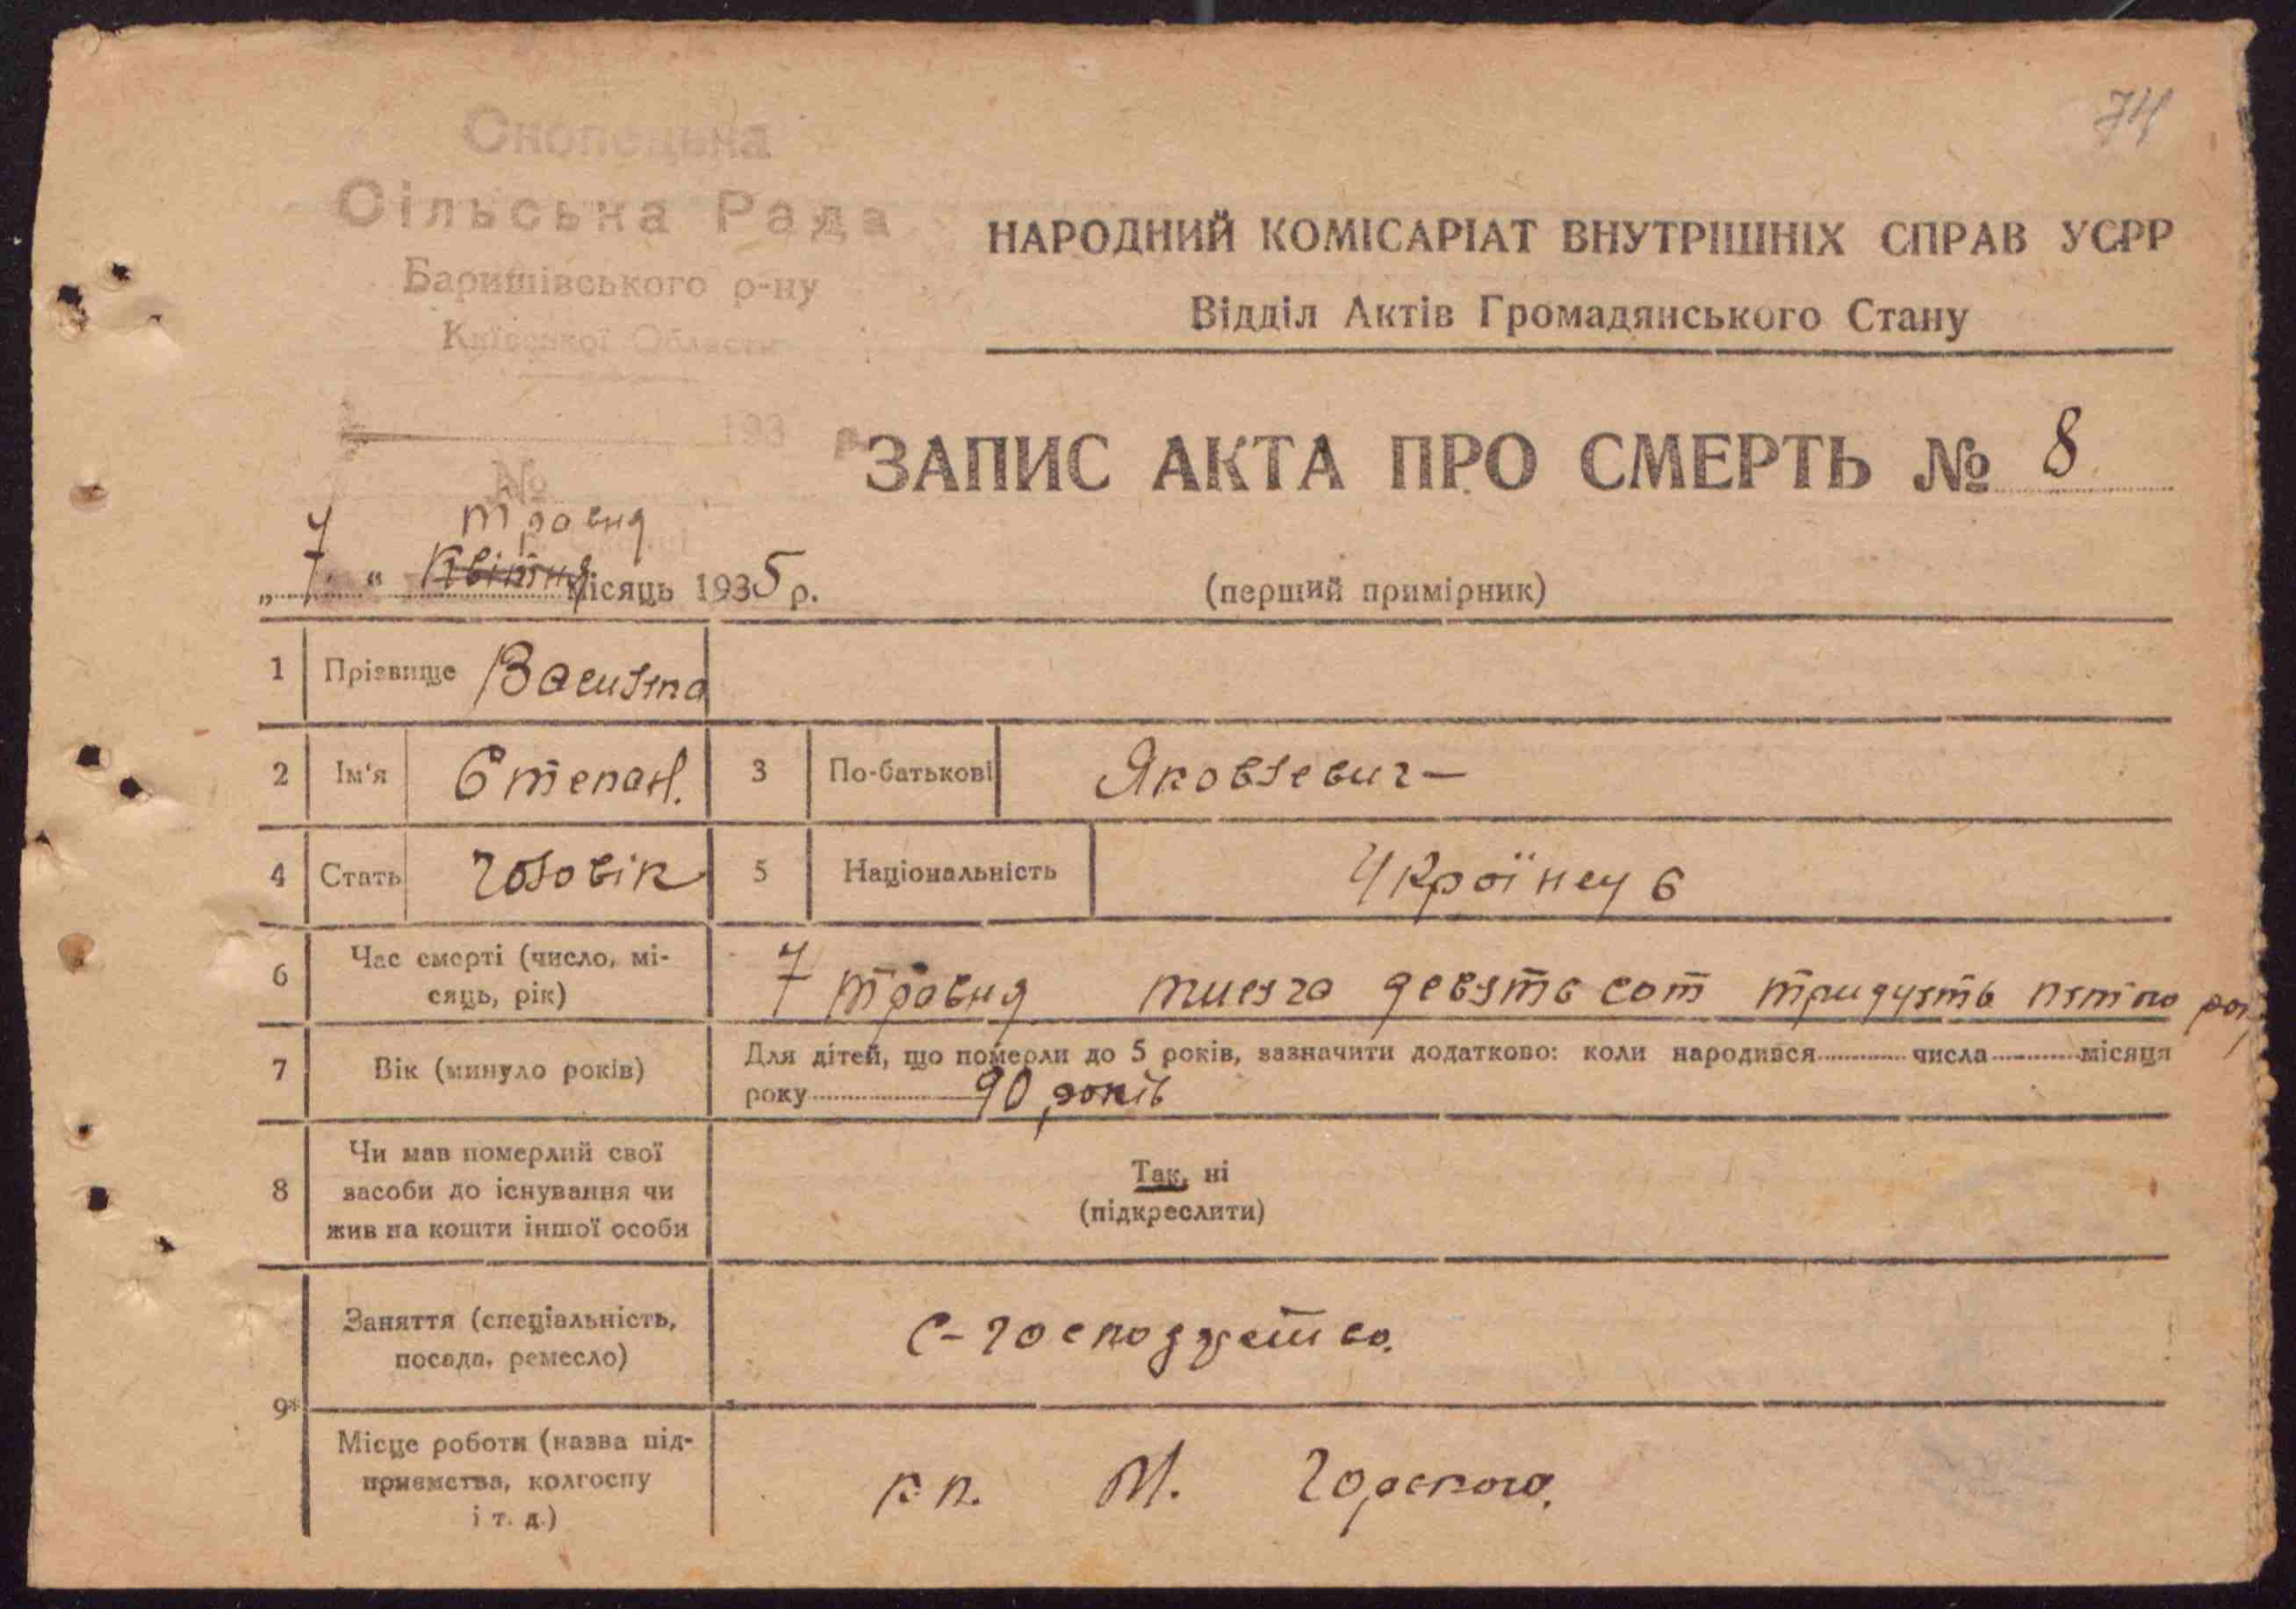 74
Снопецька
Сільська Рада
Баришівського р-ну
Київської Области
193 р.
№
НАРОДНИЙ КОМІСАРІАТ ВНУТРІШНІХ СПРАВ УСРР
Відділ Актів Громадянського Стану
ЗАПИС АКТА ПРО СМЕРТЬ № 8
травня
„ 7 “ квітня місяць 1935 р.
(перший примірник)
1 Прізвище Васюта
2 Ім'я Степан. 3 По-батькові Яковлевич
4 Стать чоловік 5 Національність Українець
6 Час смерті (число, мі-
сяць, рік) 7 травня тисяча девятьсот тридцять пятого
7 Вік (минуло років) Для дітей, що померли до 5 років, зазначити додатково: коли народився числа місяця
року 90 років
8 Чи мав померлий свої
засоби до існування чи
жив на кошти іншої особи
Так, ні
(підкреслити)
9*
Заняття (спеціальність,
посада, ремесло)
Місце роботи (назва під-
приємства, колгоспу
і т. д.)
М. Горского.